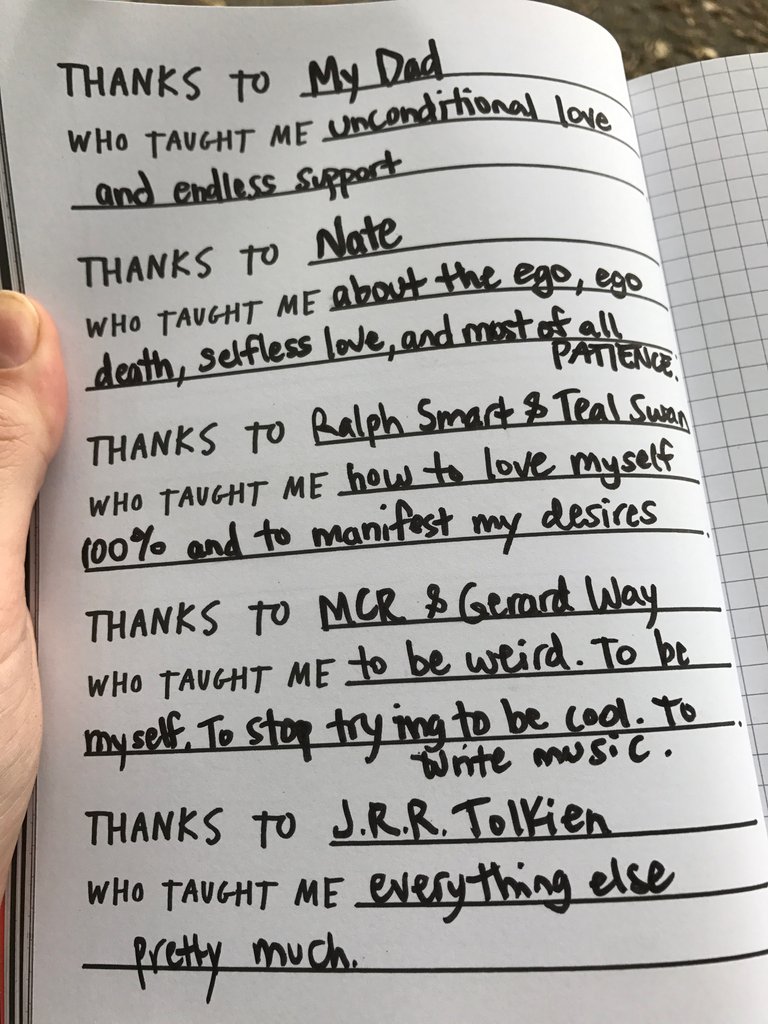 THANKS TO My Dad
WHO TAUGHT ME unconditional love
and endless support
THANKS TO Nate
WHO TAUGHT ME about the ego, ego
death, selfless love, and most of all
PATIENCE.
THANKS TO Ralph Smart & Teal Swan
WHO TAUGHT ME how to love myself
100% and to manifest my desires.
THANKS TO MCR & Gerard Way
WHO TAUGHT ME to be weird. To be
myself. To stop trying to be cool. To
write music.
THANKS TO J.R.R. Tolkien
WHO TAUGHT ME everything else
pretty much.